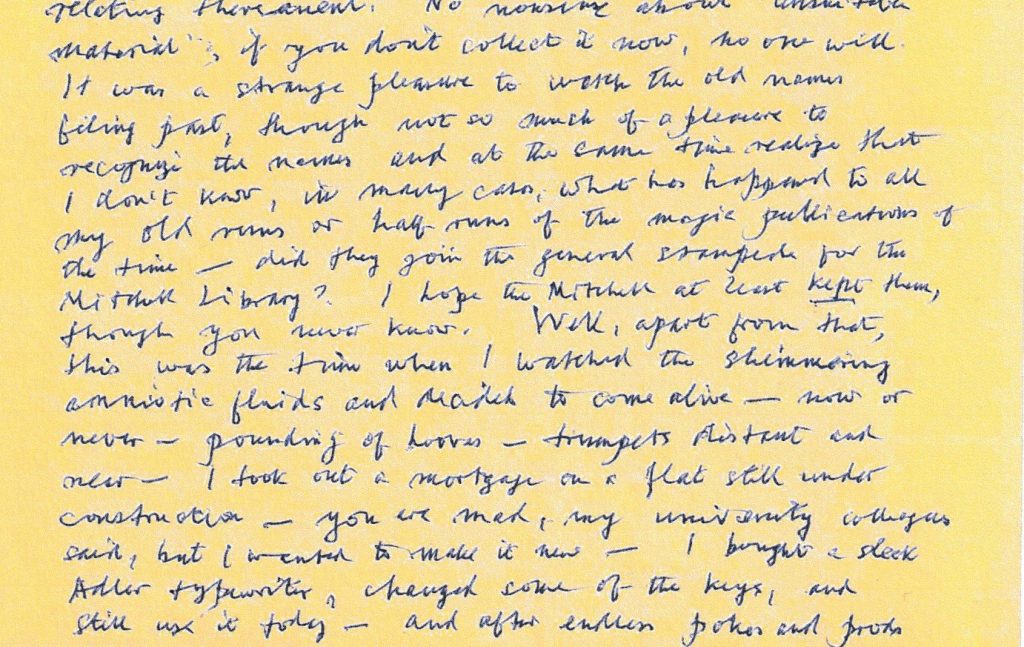 relating thereanent. No nonsense about "ensuite
material", if you don't collect it now, no one will.
It was a strange pleasure to watch the old names
filing past, though not so much of a pleasure to
recognize the names and at the same time realize that
I don't know, in many cases, what has happened to all
my old runs or half-runs of the magic publications of
the time — did they join the general stampede for the
Mitchell Library? I hope the Mitchell at least kept them,
though you never know. Well, apart from that,
this was the time when I watched the shimmering
amniotic fluids and decided to come alive — now or
never — pounding of hooves — trumpets distant and
near — I took out a mortgage on a flat still under
construction — you are mad, my university colleagues
said, but I wanted to make it new — I bought a sleek
Adler typewriter, changed some of the keys, and
still use it today — and after endless pokes and prods